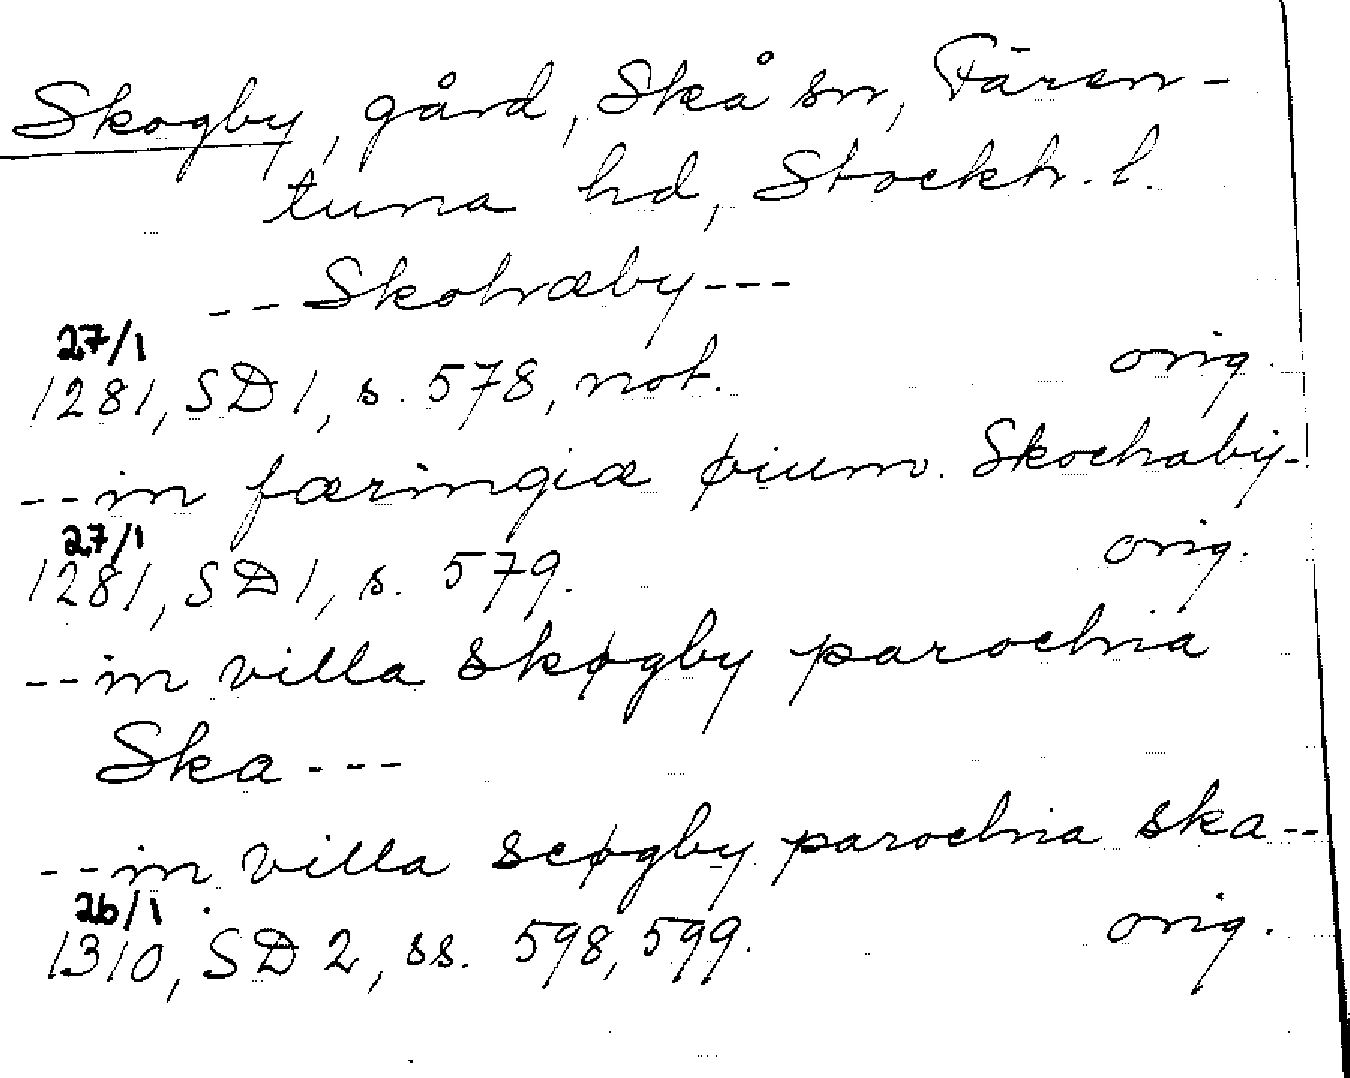 Skogby, gård, Skå sn, Fären-
tuna hd, Stockh. l.
-- Skohræby ---
27/1
1281, SD 1, s. 578, not. orig.
-- in færingiæ øium. Skochaby-
27/1
1281, SD 1, s. 579. orig.
-- in villa skøgby parochia
Ska ---
-- in villa scøgby parochia ska --
26/1
1310, SD 2, ss. 598, 599. orig.